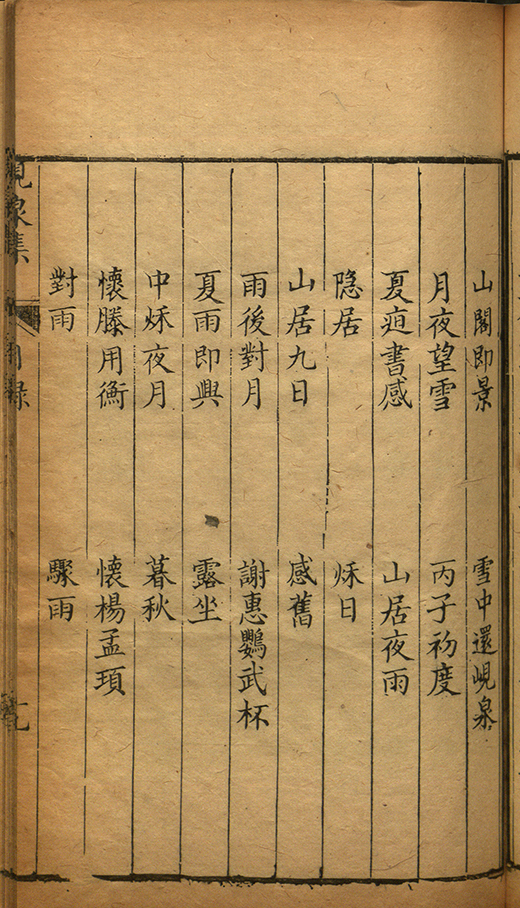 山閣即景　雪中還峴泉
月夜望雪　丙子初度
夏書感　山居夜雨
隐居　秌日
山居九日　感舊
雨後對月　謝惠鸚武杯
夏雨即興　露坐
中秌夜月　暮秋
懷滕用衡　懷楊孟頊
對雨　驟雨
峴泉集　目録